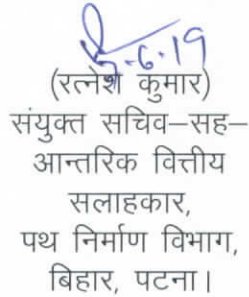 5.6.19
(रत्नेश कुमार)
संयुक्त सचिव–सह–
आन्तरिक वित्तीय
सलाहकार,
पथ निर्माण विभाग,
बिहार, पटना।